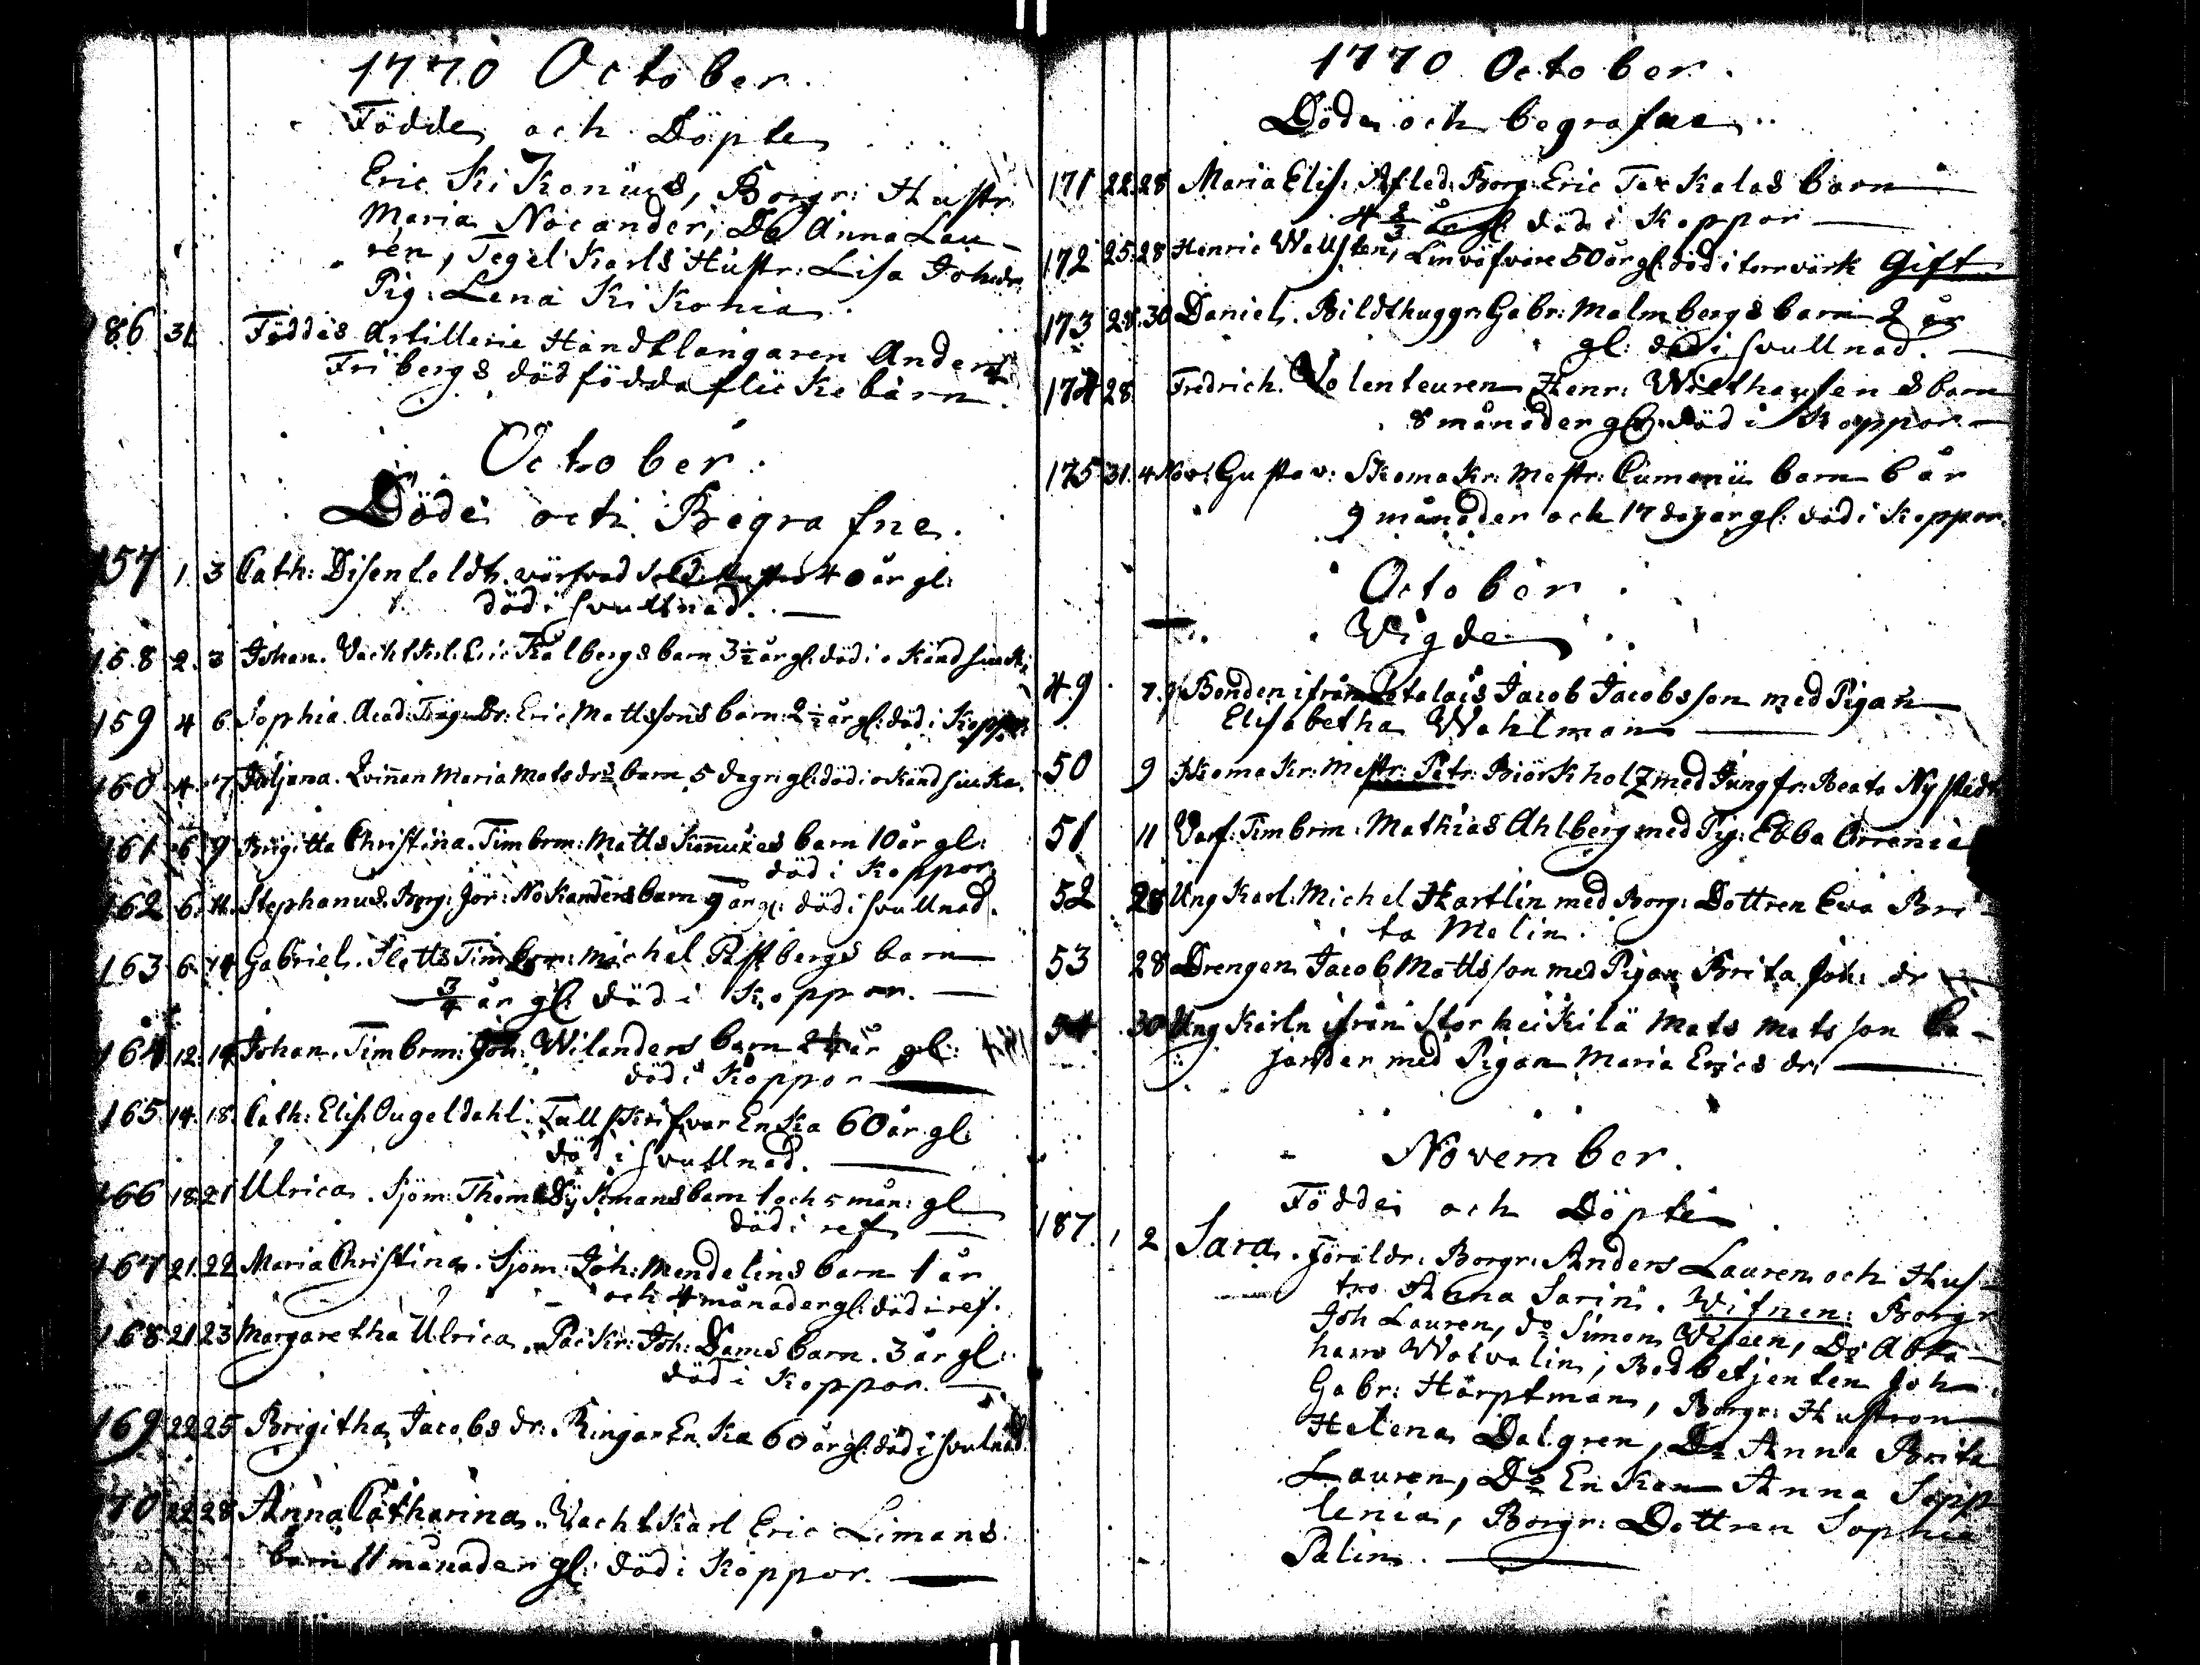 1770 October.
Födde och Döpte
Eric Kikonius, Borgr: Hustr.
Maria Nocander, Do Anna Lau-
ren, Tegel Karls Hustr: Lisa Johsdr.
Pig: Lena Kikonia.
186 31 Föddes Artillerie Handtlangaren Anders
Fribergs dödfödda flickebarn.
October.
Döde och Begrafne.
157 1. 3 Cath: Disenfeldt. värfvad 40 år gl:
död i svullnad.
158 2. 3 Johan. Vachtkrl. Eric Kalbergs barn 3½ år gl. död i okänd siuk:
159 4 6 Sophia. Acad: Eric Mattssons barn: 2½ år gl: död i Koppor
160 4 7 Juljana. Qvinnan Maria Matsdrs barn 5 dagr gl. död i okänd siuka.
161 6 9 Brigitta Christina. Timbrm: Matts barn 10 år gl:
död i Koppor
162 6. 11. Stephanus. Borg: Jör: Nokanders barn 9 år gl: död i svullnad.
163 6. 14 Gabriel. Slotts Timbrm: Michel Pastbergs barn
3/4 år gl: död i Koppor.
164 12. 14 Johan. Timbrm: Joh: Wilanders barn 2¼ år gl:
död i Koppor
165 14. 18. Cath: Elis. Ougeldahl. Tullskrifvar Enka 60 år gl:
död i svullnad.
166 18. 21 Ulrica. Sjöm: Thom: barn 1 och 5 mån: gl
död i ref
167 21. 22 Maria Christina. Sjöm: Joh: Mendelins barn 1 år
och 4 månader gl: död i ref.
168 21 23 Margaretha Ulrica. Packr: Joh: Dams barn. 3 år gl:
död i Koppor.
169 22 25 Brigitha Jacobs dr: Ringar Enka 60 år gl: död i svulnad.
170 22 28 Anna Catharina. Vachtkarl Eric Limans
barn 11 månader gl: död i Koppor.
1770 October.
Döde och begrafne
171 22. 28 Maria Elis. Afled: Borg: Eric Tackalas barn
4 gl: död i Koppor
172 25. 28 Henric Wallsten, Linväfvare 50 år gl: död i torrvärk Gift
173 28. 30 Daniel. Bildthuggr: Gabr: Malmbergs barn 2 år
gl: död i svullnad.
174 28 Fredrich. Volenteuren Henr: Wilthausens barn
8 månader gl: död i Koppor
175 31. 4 Nov: Gustav: Skomakr: Mestr: Cumenii barn 6 år
9 månader och 17 dagar gl: död i Koppor.
October
Wigde
49 7. Bonden ifrån Jacob Jacobsson med Pigan
Elisabetha Wahlman
50 9 Skomakr: Mestr: Petr: Biörkholz med Jungfr: Beata Nystedt
51 11 Varf: Timbrm: Mathias Ahlberg med Pig: Ebba Orrenia
52 28 Ung Karl. Michel Hartlin med Borg: Dottren Eva Bri-
ta Melin.
53 28 Drengen Jacob Mattsson med Pigan Brita Joh: dr
54 30 Ung Karln ifrån Storheikilä Mats Matsson Ca-
jander med Pigan Maria Erics dr:
November.
Födde och Döpte
187. 1 2 Sara. Föräldr: Borgr: Anders Lauren och Hus-
tro Anna Sarini. Witnen: Borgr
Joh Lauren, do Simon Wiseen, Do Abra-
ham Watvalin, Bodbetjenten Joh.
Gabr: Härptman, Borgr: Hustron
Helena Dalgren, Do Anna Brita
Lauren, Do Enkan Anna Sepp
lenia, Borgr: Dottren Sophia
Palin.